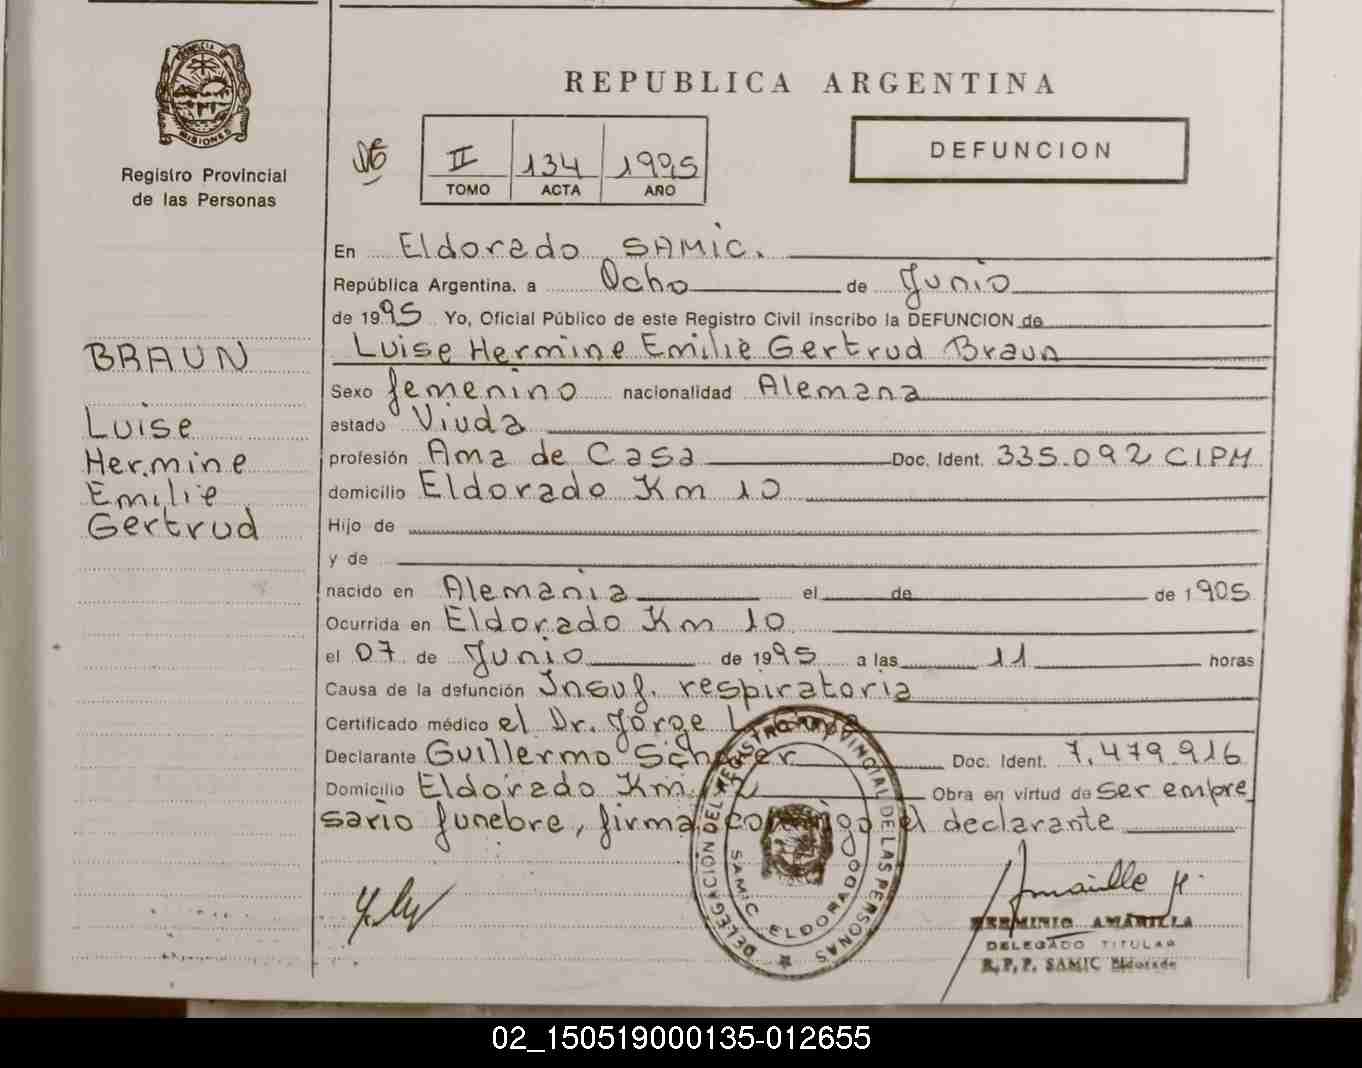 REPUBLICA ARGENTINA
MISIONES
Registro Provincial
de las Personas
II 134 1995
TOMO ACTA AÑO
DEFUNCION
En Eldorado SAMIC.
República Argentina, a Ocho de Junio
de 1995 Yo, Oficial Público de este Registro Civil inscribo la DEFUNCION de
Luise Hermine Emilie Gertrud Braun
BRAUN
Luise
Hermine
Emilie
Gertrud
Sexo femenino nacionalidad Alemana
estado Viuda
profesión Ama de Casa Doc. Ident. 335.092 CIPM
domicilio Eldorado Km 10
Hijo de
y de
nacido en Alemania el de de 1905
Ocurrida en Eldorado Km 10
el 07 de Junio de 1995 a las 11 horas
Causa de la defunción Insuf. respiratoria
Certificado médico el Dr. Jorge
Declarante Guillermo Doc. Ident. 7.479.916
Domicilio Eldorado Km. Obra en virtud de ser empre
sario funebre, firma conmigo el declarante
DELEGACION DEL REGISTRO PROVINCIAL DE LAS PERSONAS
SAMIC ELDORADO
HERMINIO AMARILLA
DELEGADO TITULAR
R.P.P. SAMIC Eldorado
02_150519000135-012655